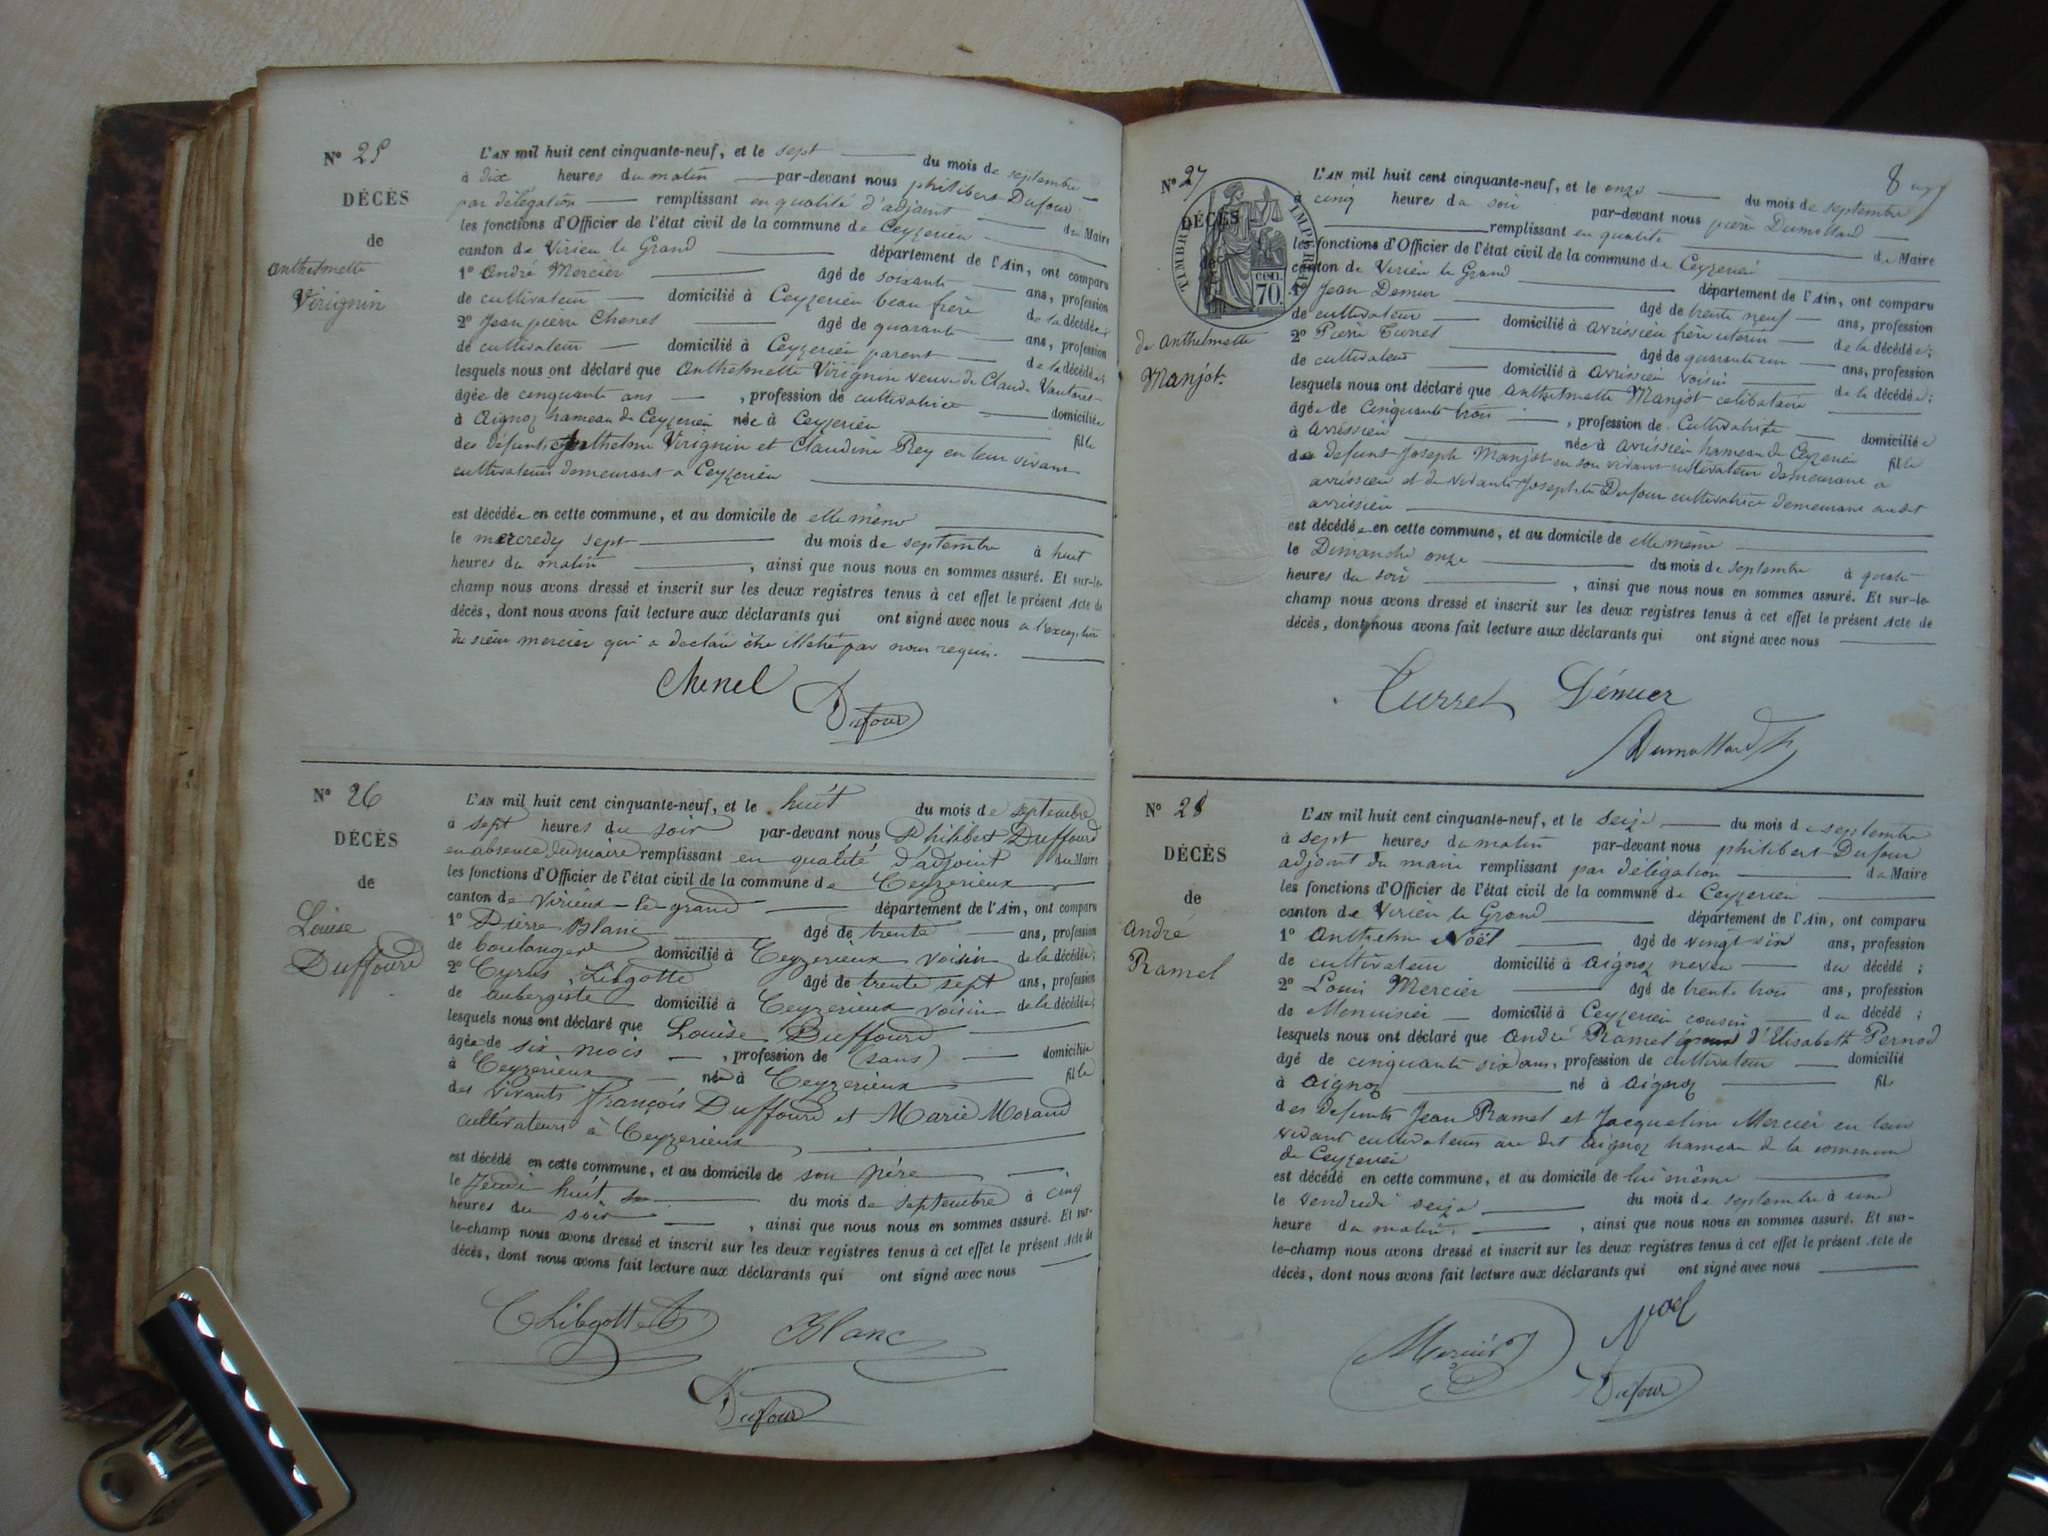 N° 25
DÉCÈS
de
Anthelmette
Virignin
L'AN mil huit cent cinquante-neuf, et le sept du mois de septembre
à dix heures du matin par-devant nous philibert Dufour
par délégation remplissant en qualité d'adjoint du Maire
les fonctions d'Officier de l'état civil de la commune de Ceyzerieu
canton de Virieu le Grand département de l'Ain, ont comparu
1° André Mercier âgé de soixante ans, profession
de cultivateur domicilié à Ceyzerieu beau frère de la décédée;
2° Jean pierre Chenel âgé de quarante ans, profession
de cultivateur domicilié à Ceyzerieu parent de la décédée;
lesquels nous ont déclaré que Anthelmette Virignin veuve de Claude
âgée de cinquante ans, profession de cultivatrice domiciliée
à Aignoz hameau de Ceyzerieu née à Ceyzerieu fille
des défunts Anthelme Virignin et Claudine Rey en leur vivant
cultivateurs demeurant a Ceyzerieu
est décédée en cette commune, et au domicile de elle même
le mercredy sept du mois de septembre à huit
heures du matin, ainsi que nous nous en sommes assuré. Et sur-le-
champ nous avons dressé et inscrit sur les deux registres tenus à cet effet le présent Acte de
décès, dont nous avons fait lecture aux déclarants qui ont signé avec nous a l'exception
du sieur mercier qui a declaré être illetré par nous requis.
Chenel
Dufour
N° 26
DÉCÈS
de
Louise
Duffourd
L'AN mil huit cent cinquante-neuf, et le huit du mois de septembre
à sept heures du soir par-devant nous Philibert Duffourd
en absence du maire remplissant en qualité d'adjoint du Maire
les fonctions d'Officier de l'état civil de la commune de Ceyzerieux
canton de Virieux-le-grand département de l'Ain, ont comparu
1° Pierre Blanc âgé de trente ans, profession
de boulanger domicilié à Ceyzerieux voisin de la décédée;
2° Cyrus Libgotte âgé de trente sept ans, profession
de aubergiste domicilié à Ceyzerieux voisin de la décédée;
lesquels nous ont déclaré que Louise Duffourd
âgée de six mois, profession de (sans) domiciliée
à Ceyzerieux née à Ceyzerieux fille
des vivants françois Duffourd et Marie Morand
cultivateurs à Ceyzerieux
est décédé en cette commune, et au domicile de son père
le Jeudi huit du mois de septembre à cinq
heures du soir, ainsi que nous nous en sommes assuré. Et sur-
le-champ nous avons dressé et inscrit sur les deux registres tenus à cet effet le présent Acte de
décès, dont nous avons fait lecture aux déclarants qui ont signé avec nous
Libgotte Blanc
Dufour
8
N° 27
DÉCÈS
TIMBRE IMPERIAL
CEN.
70.
de Anthelmette
Manjot.
L'AN mil huit cent cinquante-neuf, et le onze du mois de septembre
à cinq heures du soir par-devant nous pierre Dumollard
remplissant en qualité de Maire
les fonctions d'Officier de l'état civil de la commune de Ceyzerieu
canton de Virieu le Grand département de l'Ain, ont comparu
1° Jean Demur âgé de trente neuf ans, profession
de cultivateur domicilié à avrissieu frère uterin de la décédée;
2° Pierre Turret âgé de quarante un ans, profession
de cultivateur domicilié à avrissieu voisin de la décédée;
lesquels nous ont déclaré que Anthelmette Manjot celibataire
âgée de cinquante trois, profession de Cultivatrice domiciliée
à avrissieu née à avrissieu hameau de Ceyzerieu fille
de defunt Joseph Manjot en son vivant cultivateur demeurant a
avrissieu et de vivante Josephte Dufour cultivatrice demeurant au dit
avrissieu
est décédée en cette commune, et au domicile de elle même
le Dimanche onze du mois de septembre à quatre
heures du soir, ainsi que nous nous en sommes assuré. Et sur-le-
champ nous avons dressé et inscrit sur les deux registres tenus à cet effet le présent Acte de
décès, dont nous avons fait lecture aux déclarants qui ont signé avec nous
Turret Démuer
Dumollard
N° 28
DÉCÈS
de
André
Ramel
L'AN mil huit cent cinquante-neuf, et le seize du mois de septembre
à sept heures du matin par-devant nous philibert Dufour
adjoint du maire remplissant par délégation du Maire
les fonctions d'Officier de l'état civil de la commune de Ceyzerieu
canton de Virieu le Grand département de l'Ain, ont comparu
1° Anthelme Noël âgé de vingt six ans, profession
de cultivateur domicilié à Aignoz neveu du décédé;
2° Louis Mercier âgé de trente trois ans, profession
de Menuisier domicilié à Ceyzerieu cousin du décédé;
lesquels nous ont déclaré que André Ramel d'Elisabeth Pernod
âgé de cinquante six ans, profession de cultivateur domicilié
à Aignoz né à Aignoz fils
des defunts Jean Ramel et Jacqueline Mercier en leur
vivant cultivateurs au dit Aignoz hameau de la commune
de Ceyzerieu
est décédé en cette commune, et au domicile de lui même
le vendredi seize du mois de septembre à une
heure du matin, ainsi que nous nous en sommes assuré. Et sur-
le-champ nous avons dressé et inscrit sur les deux registres tenus à cet effet le présent Acte de
décès, dont nous avons fait lecture aux déclarants qui ont signé avec nous
Mercier Noël
Dufour